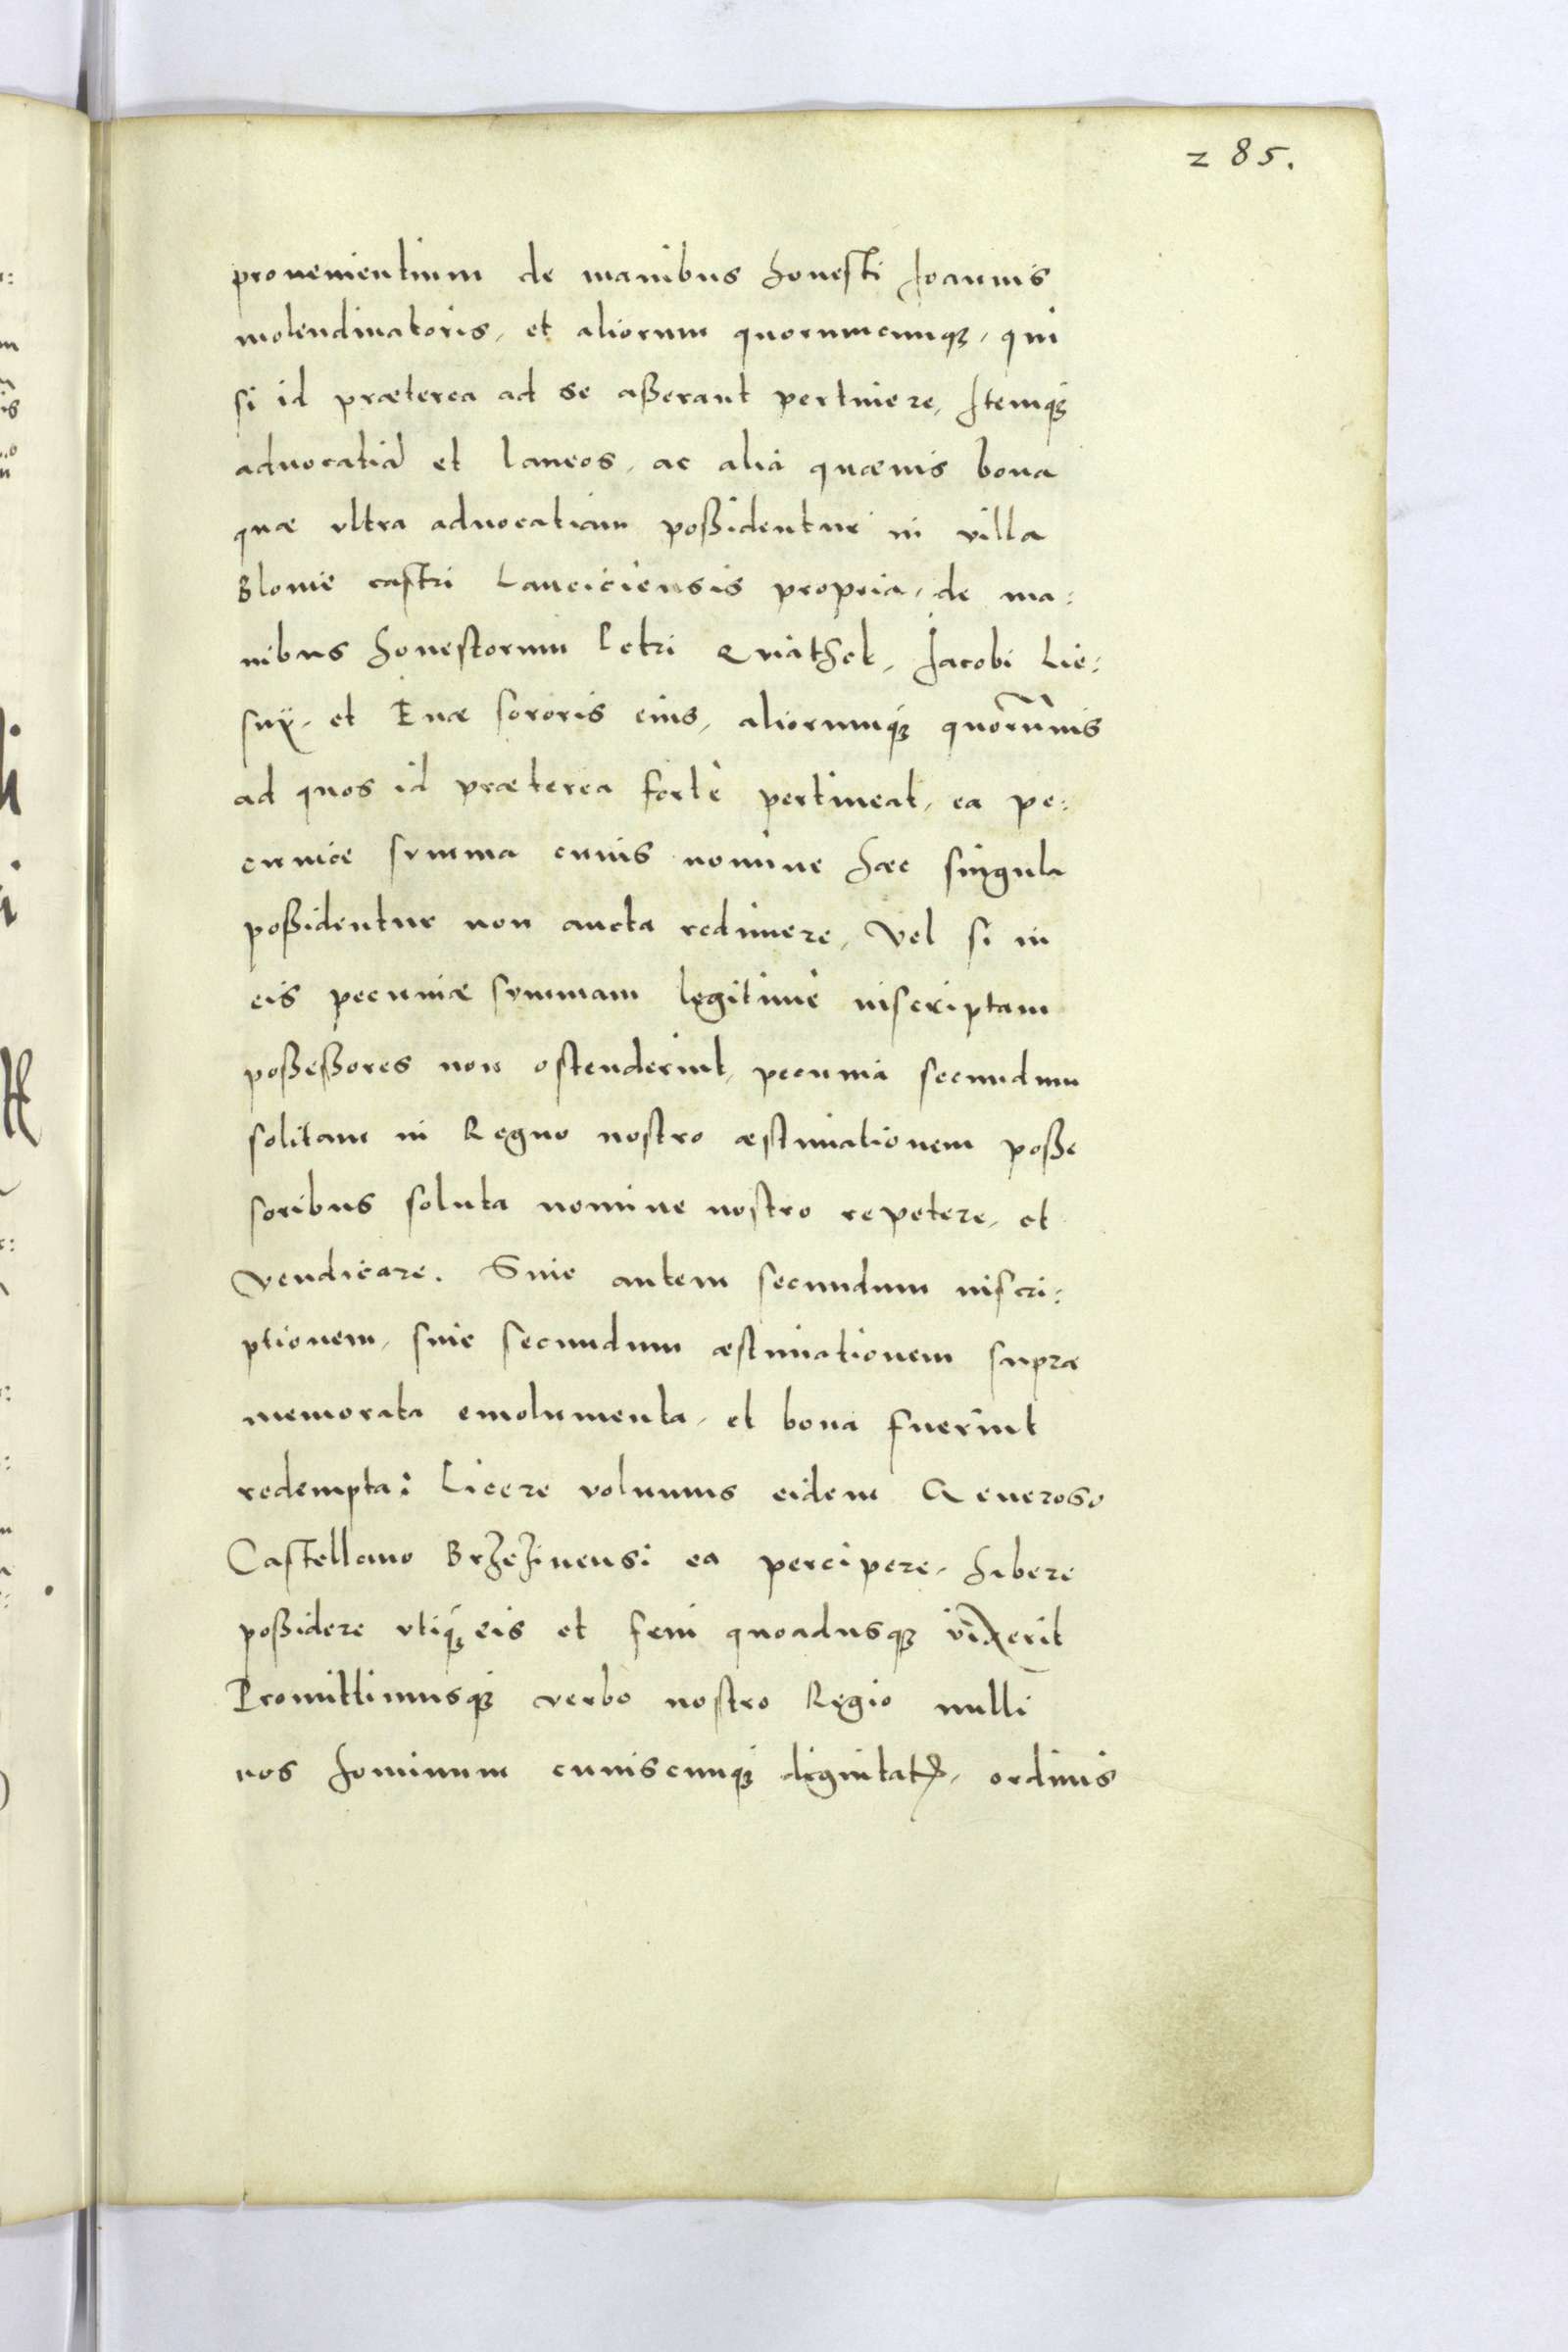 285.
prouenientium de manibus honesti Joannis
molendinatoris, et aliorum quorumcunq3, qui
si id præterea ad se aßerant pertinere, Itemq3
aduocatiã et laneos, ac alia quæuis bona
quæ vltra aduocatiam poßidentur in villa
Blonie castri Lanciciensis propria, de ma:
nibus honestorum Petri Qviathek, Jacobi Lie:
sny, et Euæ sororis eius, aliorumq3 quorũuis
ad quos id præterea fortè pertineat, ea pe:
cuniæ summa cuius nomine hæc singula
poßidentur non aucta redimere, Vel si in
eis pecuniæ summam legitimè inscriptam
poßeßores non ostenderint, pecunia secundum
solitam in Regno nostro æstimationem poße
soribus soluta nomine nostro repetere, et
vendicare. Siue autem secundum inscri:
ptionem, siue secundum æstimationem supra
memorata emolumenta, et bona fuerint
redempta: Licere volumus eidem Generoso
Castellano Brzezinensi ea percipere, habere
poßidere utiq3 eis et frui quoadusq3 vixerit
Promittimusq3 verbo nostro Regio nulli
nos hominum cuiuscunq3 dignitatis, ordinis